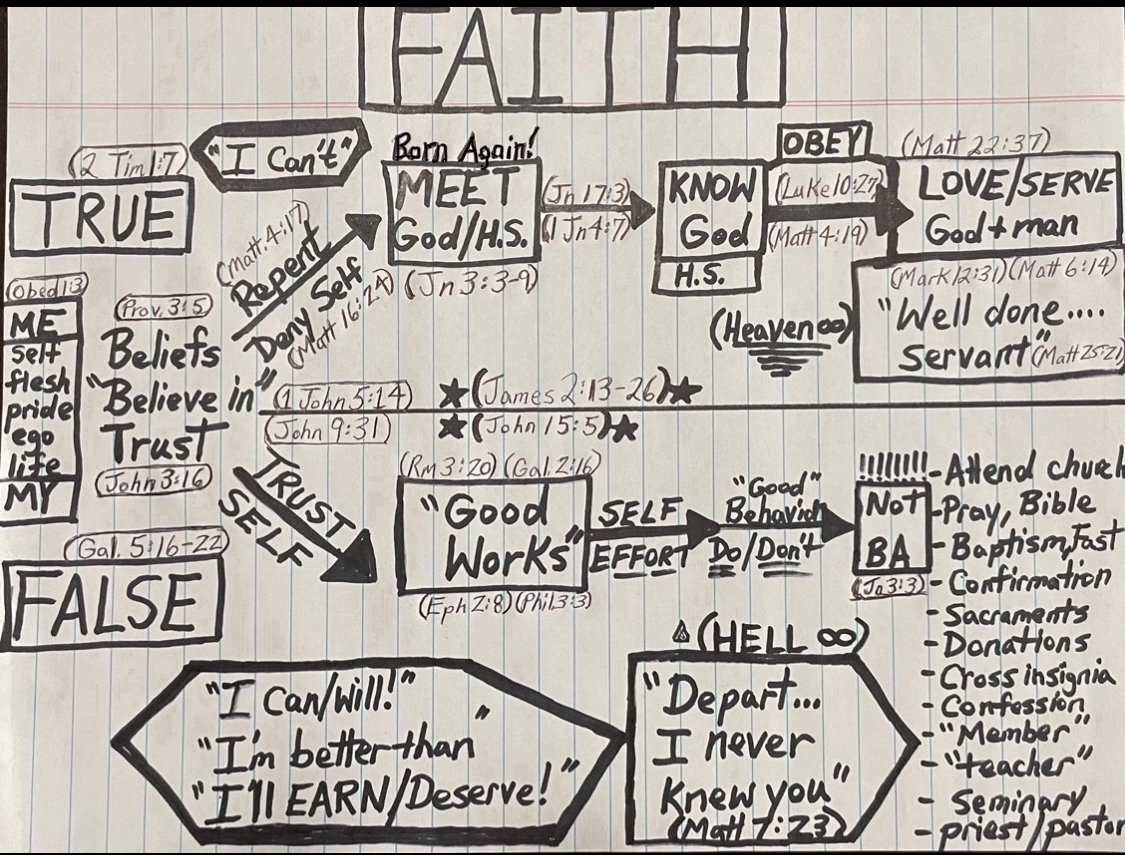 FAITH
(2 Tim 1:7)
TRUE
"I Can't"
Born Again!
MEET
God/H.S.
(Jn 3:3-9)
(Matt 4:17)
Repent
Deny Self
(Matt 16:24)
(Jn 17:3)
(1 Jn 4:7)
KNOW
God
H.S.
OBEY
(Luke 10:27)
(Matt 4:19)
(Matt 22:37)
LOVE/SERVE
God + man
(Mark 12:31) (Matt 6:14)
"Well done....
servant" (Matt 25:21)
(Heaven ∞)
(Obed 1:3)
ME
self
flesh
pride
ego
life
MY
(Prov. 3:5)
Beliefs
"Believe in"
Trust
(John 3:16)
(1 John 5:14)
★(James 2:13-26)★
(John 9:31)
★(John 15:5)★
TRUST
SELF
(Gal. 5:16-22)
FALSE
(Rm 3:20) (Gal. 2:16)
"Good
Works"
(Eph 2:8) (Phil 3:3)
SELF
EFFORT
"Good"
Behavior
Do/Don't
!!!!!!!!!
NOT
BA
(Jn 3:3)
- Attend church
- Pray, Bible
- Baptism, Fast
- Confirmation
- Sacraments
- Donations
- Cross insignia
- Confession
- "Member"
- "teacher"
- Seminary
- priest/pastor
"I Can/will!"
"I'm better than"
"I'll EARN/Deserve!"
(HELL ∞)
"Depart...
I never
Knew you"
(Matt 7:23)